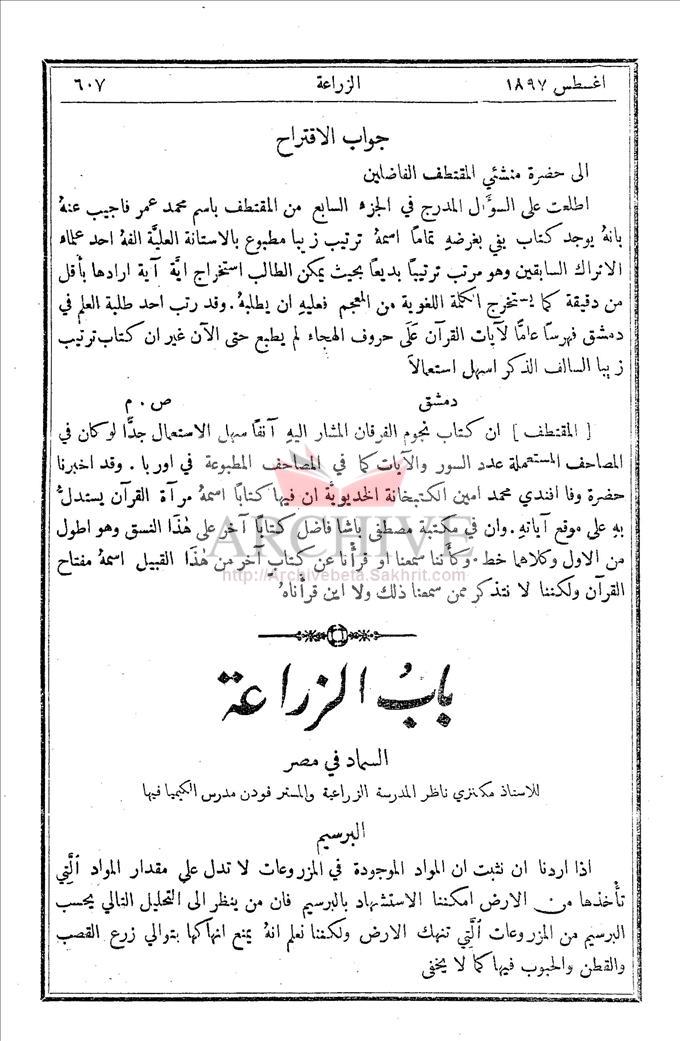 اغسطس ١٨٩٧ الزراعة ٦٠٧
جواب الاقتراح
الى حضرة منشئي المقتطف الفاضلين
اطلعت على السوَّال المدرج في الجزء السابع من المقتطف باسم محمد عمر فاجيب عنهُ
بانهُ يوجد كتاب يفي بغرضهِ تمامًا اسمهُ ترتيب زيبا مطبوع بالاستانة العليَّة الفهُ احد علماء
الاتراك السابقين وهو مرتب ترتيبًا بديعًا بحيث يمكن الطالب استخراج ايَّة آية ارادها بأقل
من دقيقة كما يستخرج الكلمة اللغوية من المعجم فعليهِ ان يطلبهُ. وقد رتب احد طلبة العلم في
دمشق فهرسًا عامًّا لآيات القرآن عَلَى حروف الهجاء لم يطبع حتى الآن غير ان كتاب ترتيب
زيبا السالف الذكر اسهل استعمالاً
دمشق ص. م
[ المقتطف ] ان كتاب نجوم الفرقان المشار اليهِ آنفًا سهل الاستعمال جدًّا لو كان في
المصاحف المستعملة عدد السور والآيات كما في المصاحف المطبوعة في اوربا. وقد اخبرنا
حضرة وفا افندي محمد امين الكتبخانة الخديويَّة ان فيها كتابًا اسمهُ مرآة القرآن يستدلُّ
بهِ على موقع آياتهِ. وان في مكتبة مصطفى باشا فاضل كتابًا آخر على هٰذا النسق وهو اطول
من الاول وكلاهما خط. وكأننا سمعنا او قرأنا عن كتاب آخر من هٰذا القبيل اسمهُ مفتاح
القرآن ولكننا لا نتذكر ممن سمعنا ذلك ولا اين قرأناهُ
ARCHIVE
http://Archivebeta.Sakhrit.com
بابُ الزراعة
السماد في مصر
للاستاذ مكنزي ناظر المدرسة الزراعية والمستر فودن مدرس الكيميا فيها
البرسيم
اذا اردنا ان نثبت ان المواد الموجودة في المزروعات لا تدل على مقدار المواد ٱلَّتِي
تأخذها من الارض امكننا الاستشهاد بالبرسيم فان من ينظر الى التحليل التالي يحسب
البرسيم من المزروعات ٱلَّتِي تنهك الارض ولكننا نعلم انهُ يمنع انهاكها بتوالي زرع القصب
والقطن والحبوب فيها كما لا يخفى